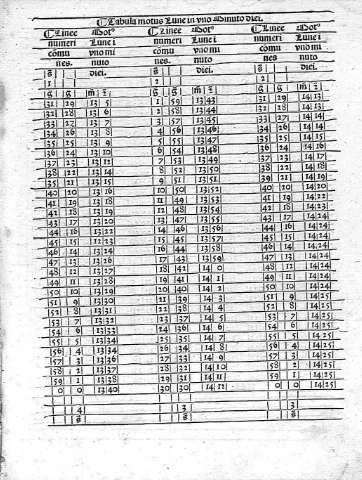 Tabula motus Lune in vno Minuto diei.
Linee Mot⁹ Linee Mot⁹ Linee Mot⁹
numeri Lune i numeri Lune i numeri Lune i
cōmu vno mi cōmu vno mi cōmu vno mi
nes. nuto nes. nuto nes. nuto
diei. diei. diei.
1 2 2
g̃ g̃ m̃ 2̃ g̃ g̃ m̃ 2̃ g̃ g̃ m̃ 2̃
31 29 13 5 1 59 13 43 31 29 14 13
32 28 13 6 2 58 13 44 32 28 14 13
33 27 13 7 3 57 13 45 33 27 14 14
34 26 13 8 4 56 13 46 34 26 14 14
35 25 13 9 5 55 13 47 35 25 14 15
36 24 13 10 6 54 13 48 36 24 14 16
37 23 13 12 7 53 13 49 37 23 14 17
38 22 13 14 8 52 13 50 38 22 14 18
39 21 13 15 9 51 13 51 39 21 14 19
40 20 13 16 10 50 13 52 40 20 14 20
41 19 13 18 11 49 13 53 41 19 14 22
42 18 13 19 12 48 13 54 42 18 14 23
43 17 13 20 13 47 13 55 43 17 14 24
44 16 13 22 14 46 13 56 44 16 14 24
45 15 13 23 15 45 13 57 45 15 14 24
46 14 13 24 16 44 13 58 46 14 14 24
47 13 13 26 17 43 13 59 47 13 14 24
48 12 13 27 18 42 14 0 48 12 14 24
49 11 13 28 19 41 14 1 49 11 14 24
50 10 13 29 20 40 14 2 50 10 14 24
51 9 13 30 21 39 14 3 51 9 14 25
52 8 13 31 22 38 14 4 52 8 14 25
53 7 13 32 23 37 14 5 53 7 14 25
54 6 13 33 24 36 14 6 54 6 14 25
55 5 13 34 25 35 14 7 55 5 14 25
56 4 13 34 26 34 14 8 56 4 14 25
57 3 13 36 27 33 14 9 57 3 14 25
58 2 13 37 28 32 14 10 58 2 14 25
59 1 13 38 29 31 14 11 59 1 14 25
0 0 13 40 30 30 14 12 0 0 14 25
4 3 3